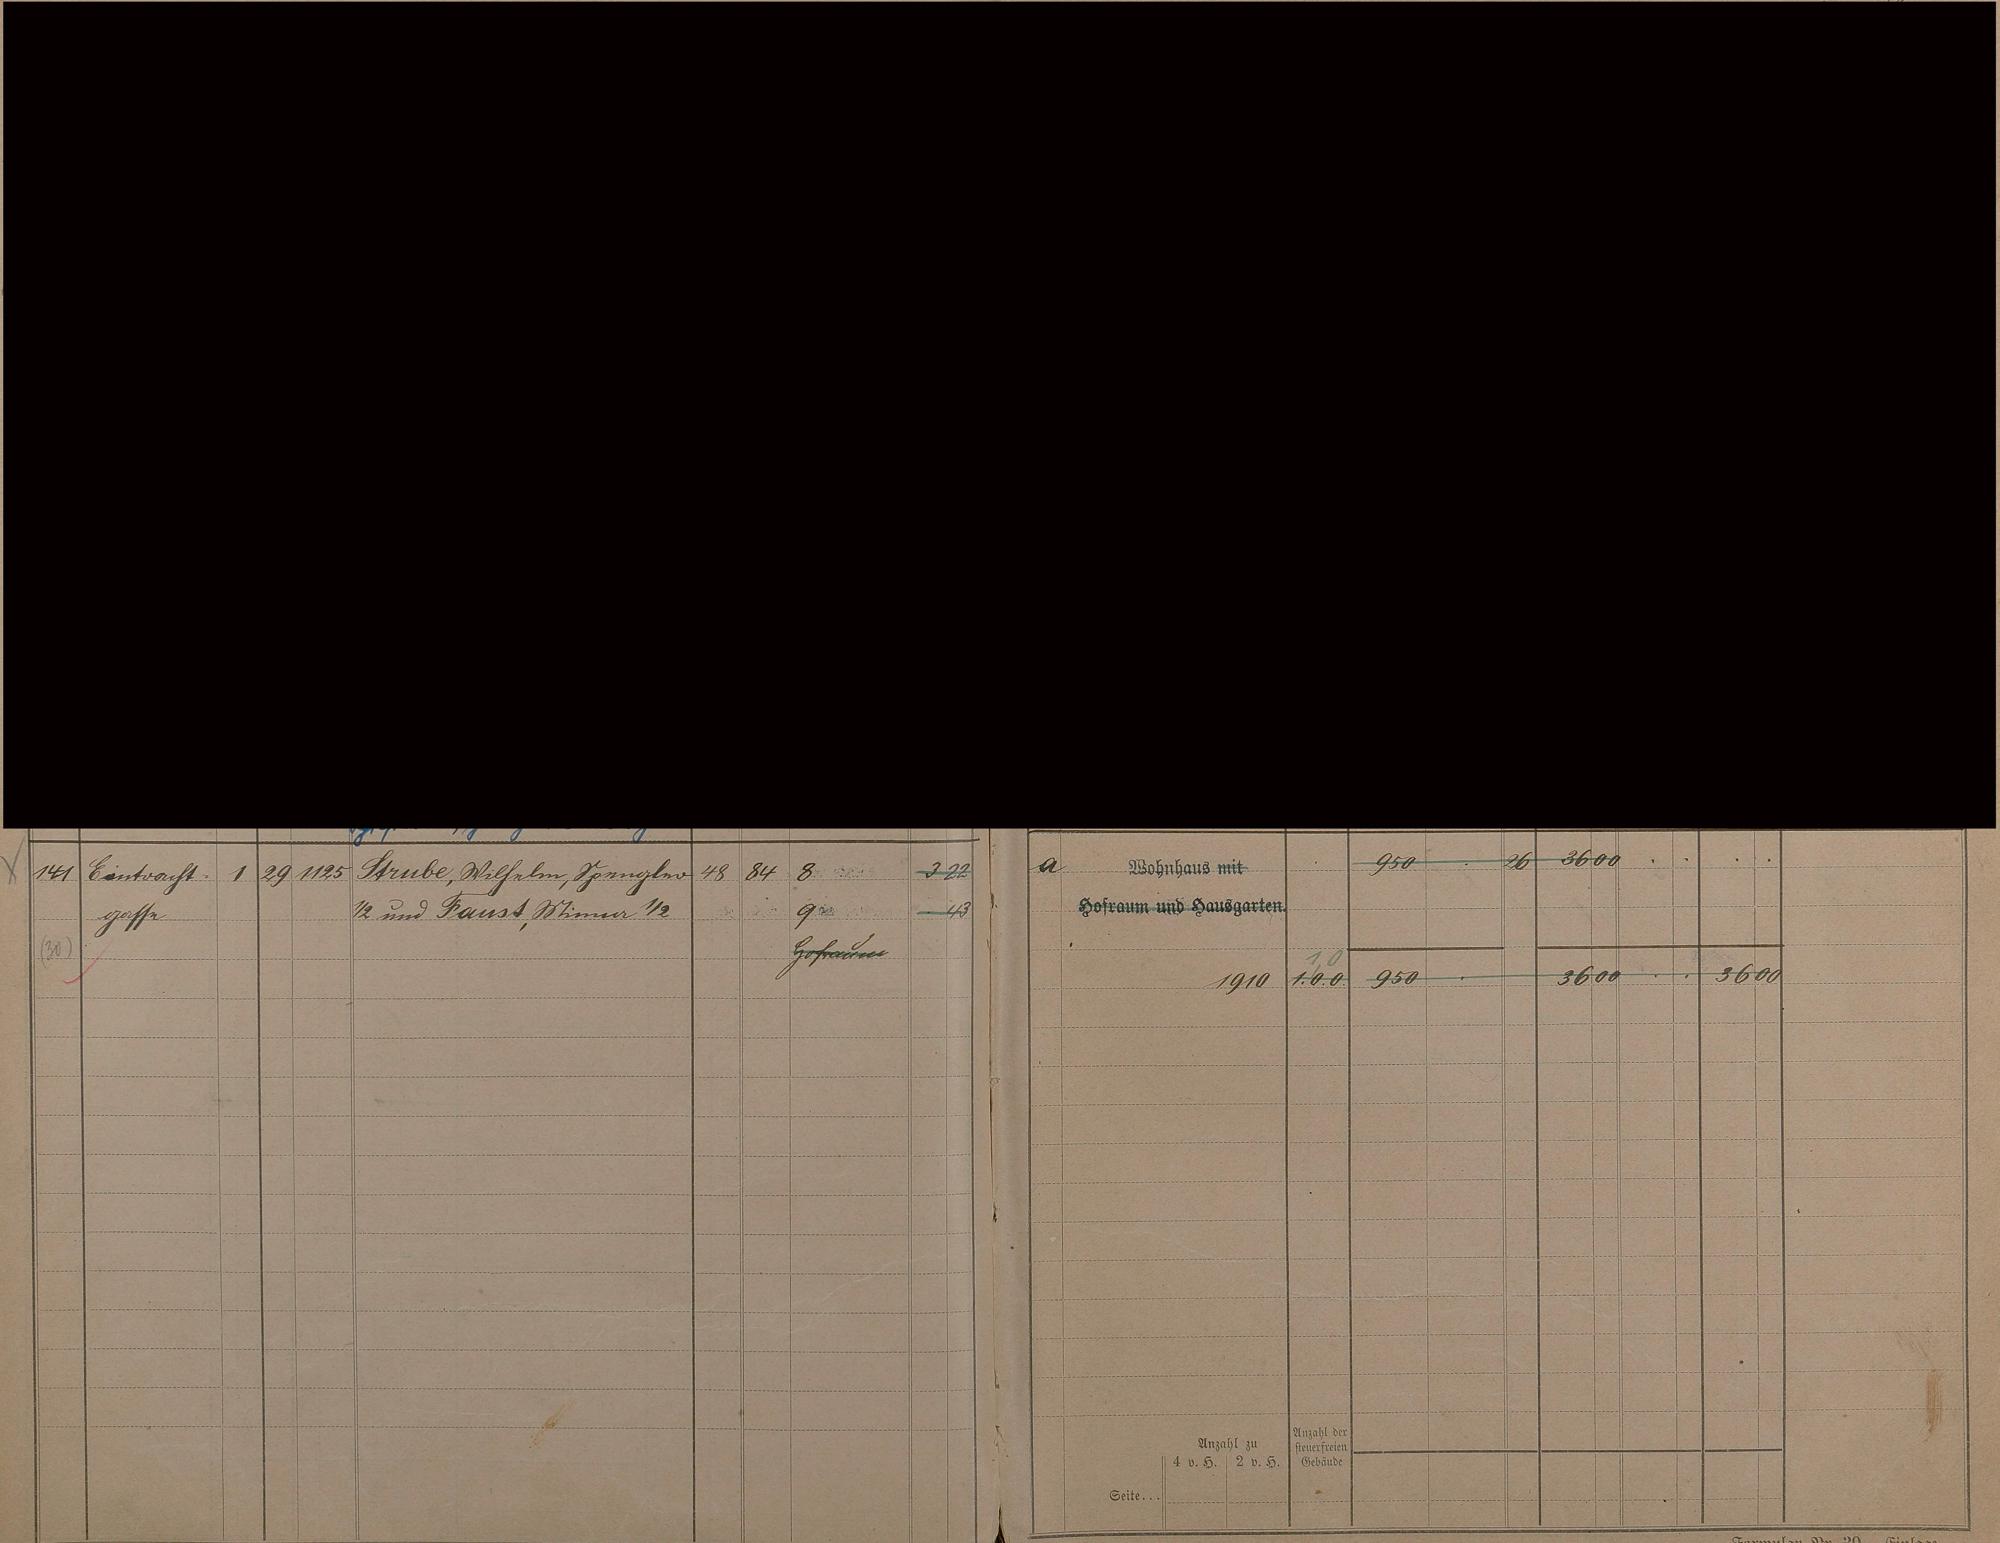 141 Eintracht- 1 29 1125 Strube, Wilhelm, Spengler 48 84 8 3 22
gasse 1/2 und Faust, Minna 1/2 9 43
(30) Hofraum
a Wohnhaus mit 950 . 26 3600 . . . .
Hofraum und Hausgarten.
1,0
1910 1.0.0. 950 . 3600 . . 3600
Anzahl zu
4 v. H. 2 v. H.
Anzahl der
steuerfreien
Gebäude
Seite...